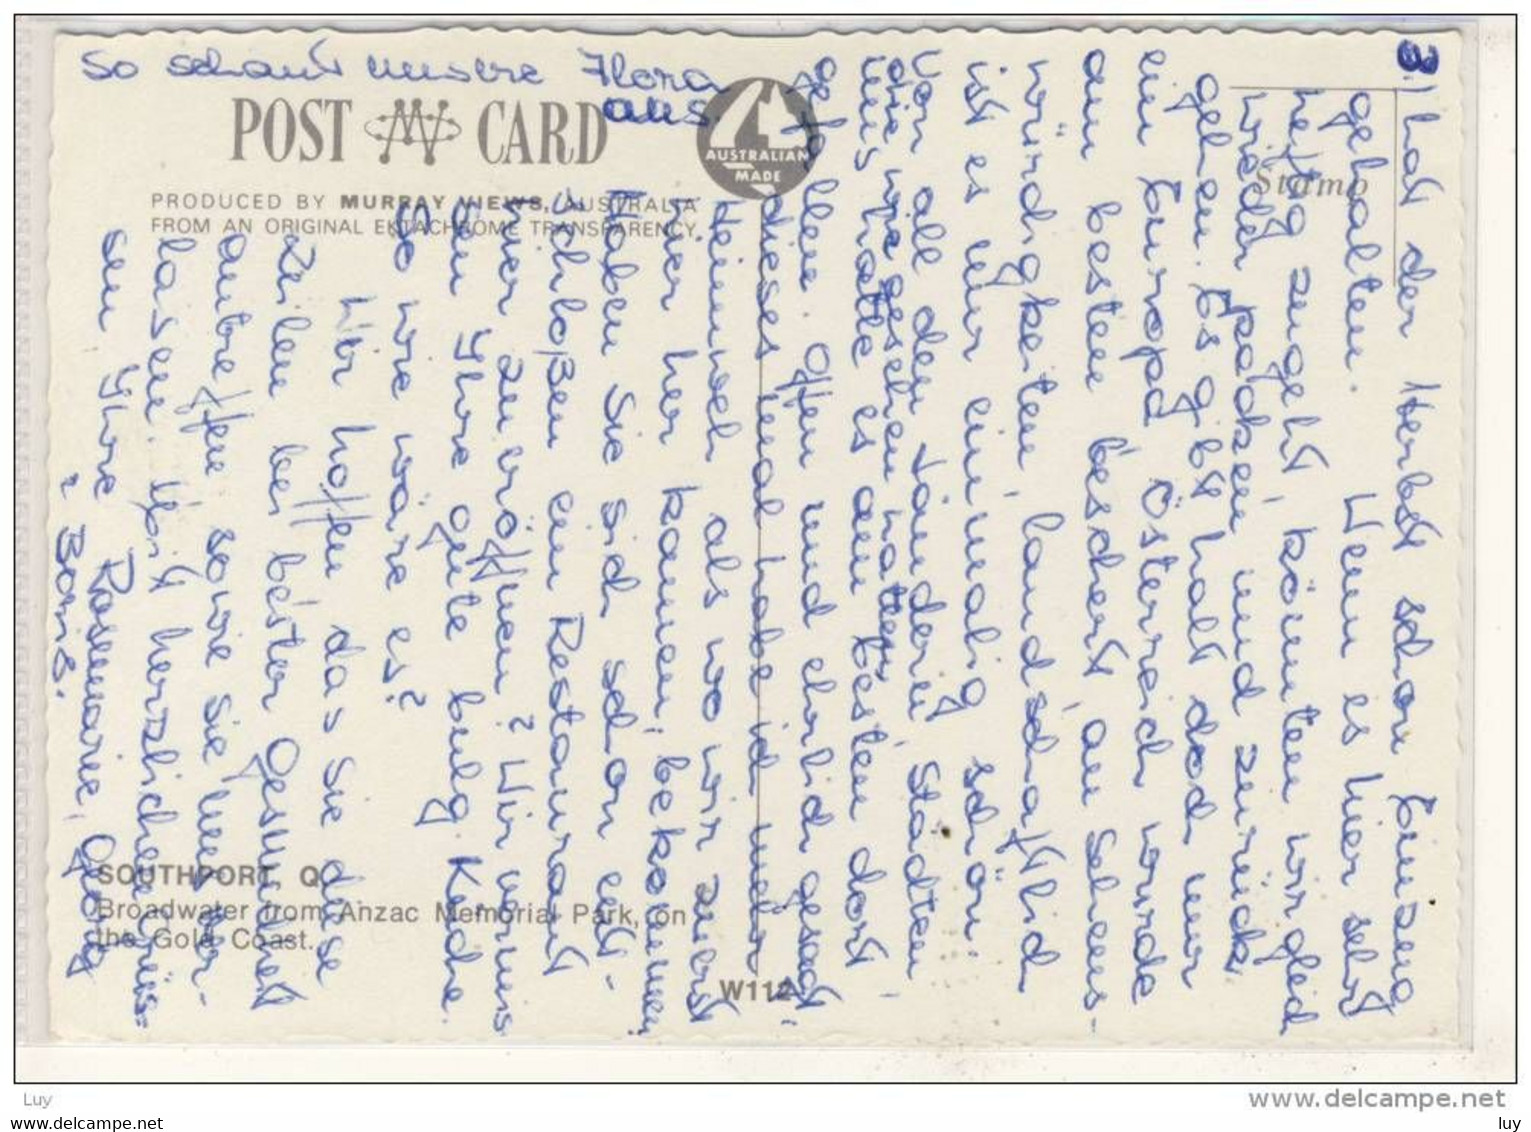 So schaut unsere Flora
aus.
POST CARD
AUSTRALIAN
MADE
Stamp
PRODUCED BY MURRAY VIEWS, AUSTRALIA
FROM AN ORIGINAL EKTACHROME TRANSPARENCY
3.) hat der Herbst schon Einzug
gehalten. Wenn es hier sehr
heftig zugeht, könnten wir gleich
wieder packen und zurück
gehen. Es gibt halt doch nur
ein Europa. Österreich wurde
am besten beschert, an Sehens-
würdigkeiten, landschaftlich
ist es nur einmalig schön.
Von all den Ländern, Städten,
die wir gesehen hatten,
uns hatte es am besten dort
gefallen. Offen und ehrlich gesagt,
dieses mal habe ich mehr
Heimweh als wo wir zuerst
hier her kamen, bekommen.
Haben Sie sich schon ent-
schloßen ein Restaurant
hier zu eröffnen? Wir vermis
sen Ihre gute bulg. Küche.
So wie wäre es?
Wir hoffen das Sie diese
Zeilen bei bester Gesundheit
antreffen sowie Sie uns ver-
lasen. Mit herzlichen Grüs=
sen Ihre Rosemarie, Georg
u Boris.
SOUTHPORT, Q.
Broadwater from Anzac Memorial Park, on
the Gold Coast.
W112
Luy
www.delcampe.net
www.delcampe.net
luy